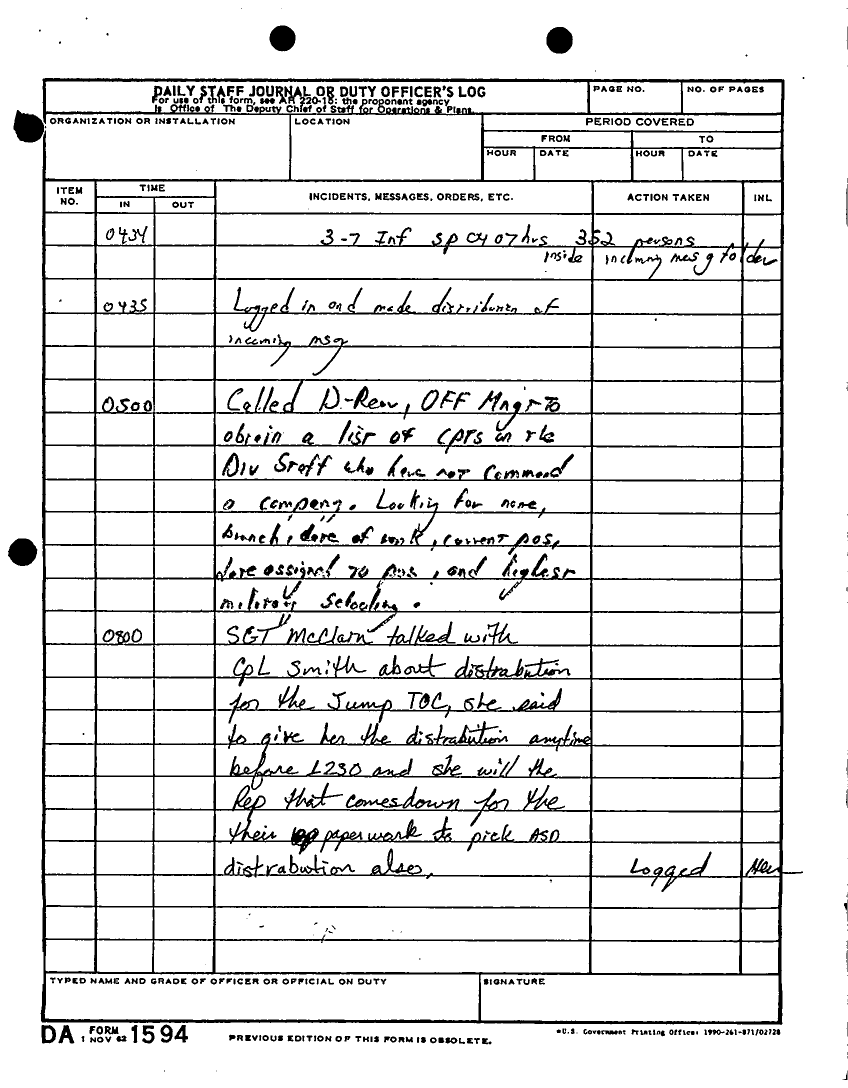 DAILY STAFF JOURNAL OR DUTY OFFICER'S LOG
For use of this form, see AR 220-15; the proponent agency
is Office of The Deputy Chief of Staff for Operations & Plans.
PAGE NO.
NO. OF PAGES
ORGANIZATION OR INSTALLATION
LOCATION
PERIOD COVERED
FROM
TO
HOUR
DATE
HOUR
DATE
ITEM NO.
TIME
IN
OUT
INCIDENTS, MESSAGES, ORDERS, ETC.
ACTION TAKEN
INL
0434 3-7 Inf SP 0407hrs 352 persons
inside incoming mesg folder
0435 Logged in and made distribution of
incoming msg
0500 Called D-Rear, OFF Mngr To
obtain a list of CPTs on the
Div Staff who have not Command
a company. Looking for name,
branch, date of rank, current pos,
date assigned to pos, and highest
military schooling.
0800 SGT McClarn talked with
CpL Smith about distrabution
for the Jump TOC, she said
to give her the distrabution anytime
before 1230 and she will the
Rep that comesdown for the
their paperwork to pick ASD
distrabution also. Logged
TYPED NAME AND GRADE OF OFFICER OR OFFICIAL ON DUTY
SIGNATURE
DA FORM 1594
1 NOV 62
PREVIOUS EDITION OF THIS FORM IS OBSOLETE.
*U.S. Government Printing Office: 1990-261-871/02728